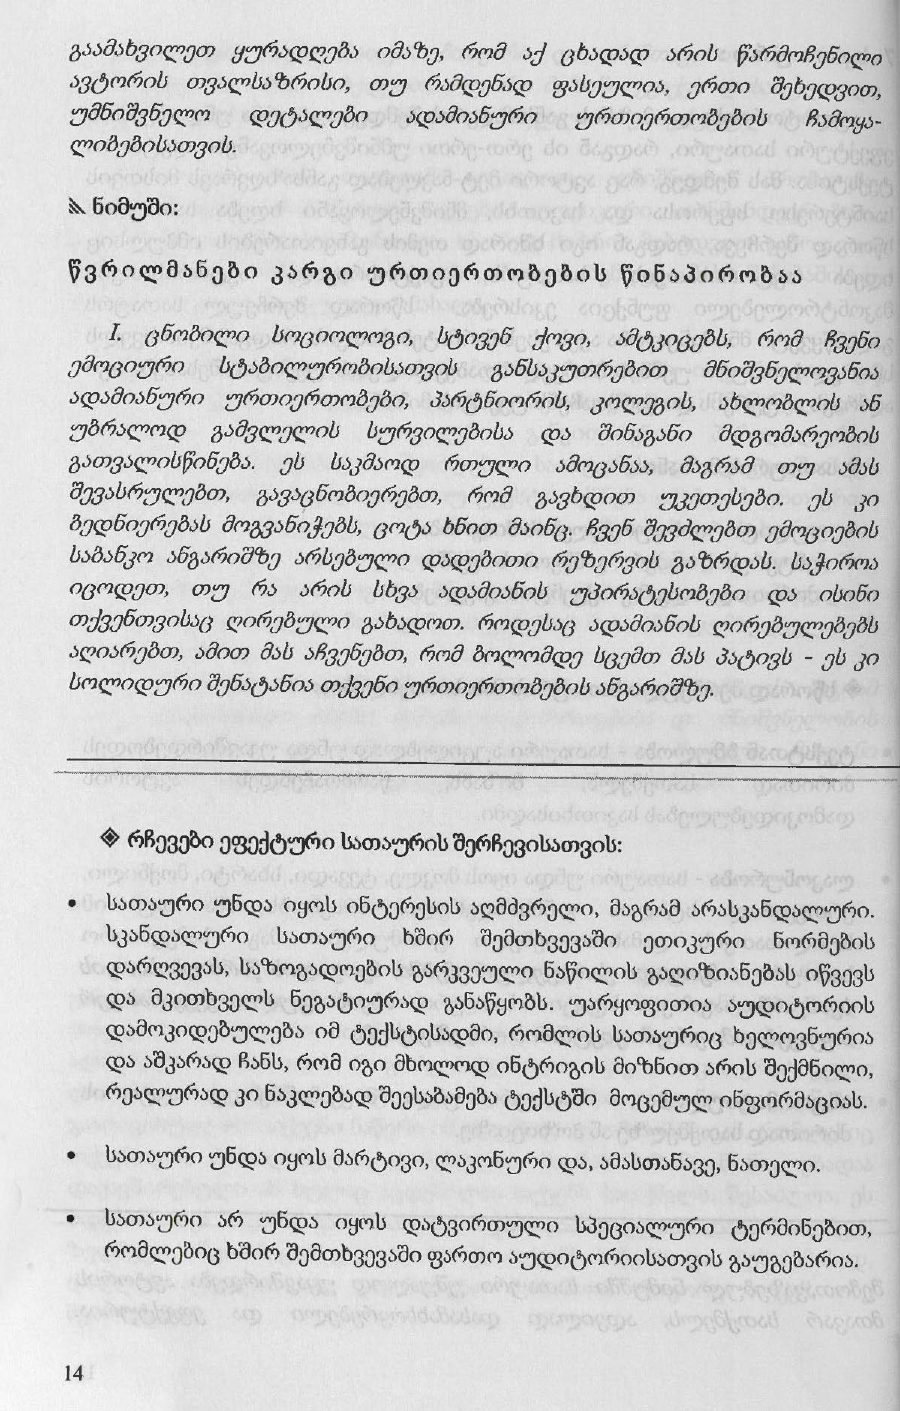 გაამახვილეთ ყურადღება იმაზე, რომ აქ ცხადად არის წარმოჩენილი
ავტორის თვალსაზრისი, თუ რამდენად ფასეულია, ერთი შეხედვით,
უმნიშვნელო დეტალები ადამიანური ურთიერთობების ჩამოყა-
ლიბებისათვის.
ნიმუში:
წვრილმანები კარგი ურთიერთობების წინაპირობაა
I. ცნობილი სოციოლოგი, სტივენ ქოვი, ამტკიცებს, რომ ჩვენი
ემოციური სტაბილურობისათვის განსაკუთრებით მნიშვნელოვანია
ადამიანური ურთიერთობები, პარტნიორის, კოლეგის, ახლობლის ან
უბრალოდ გამვლელის სურვილებისა და შინაგანი მდგომარეობის
გათვალისწინება. ეს საკმაოდ რთული ამოცანაა, მაგრამ თუ ამას
შევასრულებთ, გავაცნობიერებთ, რომ გავხდით უკეთესები. ეს კი
ბედნიერებას მოგვანიჭებს, ცოტა ხნით მაინც. ჩვენ შევძლებთ ემოციების
საბანკო ანგარიშზე არსებული დადებითი რეზერვის გაზრდას. საჭიროა
იცოდეთ, თუ რა არის სხვა ადამიანის უპირატესობები და ისინი
თქვენთვისაც ღირებული გახადოთ. როდესაც ადამიანის ღირებულებებს
აღიარებთ, ამით მას აჩვენებთ, რომ ბოლომდე სცემთ მას პატივს - ეს კი
სოლიდური შენატანია თქვენი ურთიერთობების ანგარიშზე.
◈ რჩევები ეფექტური სათაურის შერჩევისათვის:
• სათაური უნდა იყოს ინტერესის აღმძვრელი, მაგრამ არასკანდალური.
სკანდალური სათაური ხშირ შემთხვევაში ეთიკური ნორმების
დარღვევას, საზოგადოების გარკვეული ნაწილის გაღიზიანებას იწვევს
და მკითხველს ნეგატიურად განაწყობს. უარყოფითია აუდიტორიის
დამოკიდებულება იმ ტექსტისადმი, რომლის სათაურიც ხელოვნურია
და აშკარად ჩანს, რომ იგი მხოლოდ ინტრიგის მიზნით არის შექმნილი,
რეალურად კი ნაკლებად შეესაბამება ტექსტში მოცემულ ინფორმაციას.
• სათაური უნდა იყოს მარტივი, ლაკონური და, ამასთანავე, ნათელი.
• სათაური არ უნდა იყოს დატვირთული სპეციალური ტერმინებით,
რომლებიც ხშირ შემთხვევაში ფართო აუდიტორიისათვის გაუგებარია.
14